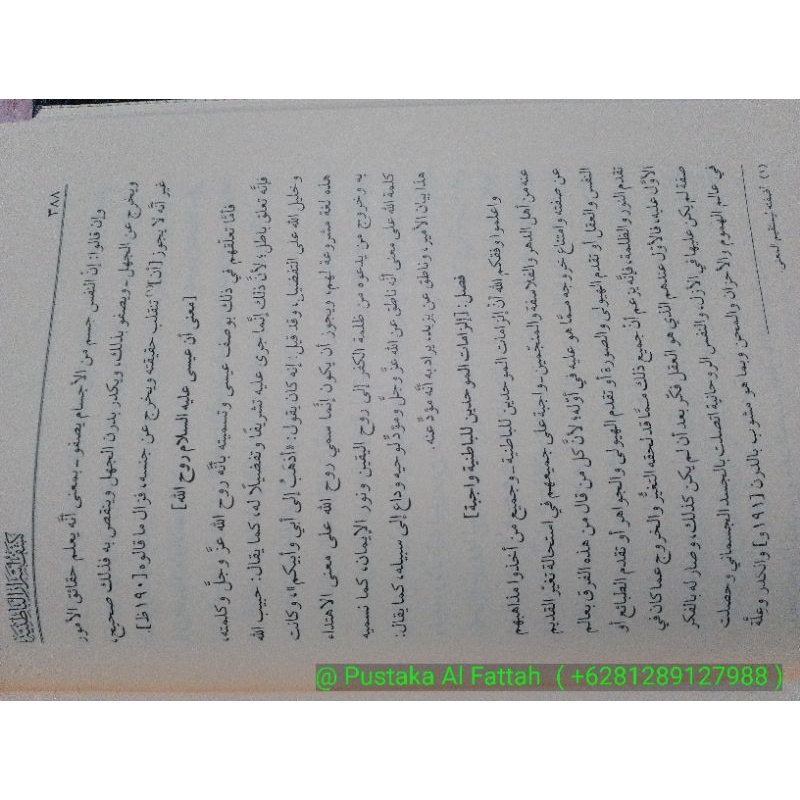 ٣٨٨
كشف أسرار الباطنية
وإن قالوا: إنّ النفس جسم من الأجسام يصفو ـ بمعنى أنّه يعلم حقائق الأمور
ويخرج عن الجهل ـ ويصفو بذلك، ويكدر بدرن الجهل وينقص به فذلك صحيح،
غير أنّه لا يجوز [أن](١) تنقلب حقيقته ويخرج عن جنسه، فزال ما قالوه [١٩٠ظ].
[معنى أن عيسى عليه السلام روح الله]
فأمّا تعلّقهم في ذلك بوصف عيسى وتسميته بأنّه روح الله عزّ وجلّ وكلمته،
فإنّه تعلق باطل؛ لأنّ ذلك إنّما جرى عليه تشريفًا وتفضيلًا له، كما يقال: حبيب الله
وخليل الله على التفضيل، وقد قيل: إنه كان يقول: «أذهبُ إلى أبي وأبيكم»، وكانت
هذه لغة مشروعة لهم، ويجوز أن يكون إنّما سمي روح الله على معنى الاهتداء
به وخروج من يدعوه من ظلمة الكفر إلى روح اليقين ونور الإيمان، كما نسميه
كلمة الله على معنى أنّه ناطق عن الله عزّ وجلّ ومؤدٍّ لوحيه وداع إلى سبيله، كما يقال:
هذا بيان الأمير، وناطق عن يزيد، يراد به أنّه مؤدٍّ عنه.
فصل: [إلزامات الموحدين للباطنية واجبة]
واعلموا وفقكم الله أنّ إلزامات الموحدين للباطنية ـ وجميع من أخذوا مذاهبهم
عنه من أهل الدهر والفلاسفة والمنجّمين ـ واجبة على جميعهم في استحالة تغيّر القديم
عن صفته وامتناع خروجه ممّا هو عليه في أوله؛ لأنّ كل من قال من هذه الفرق بعالم
النفس والعقل أو تقدم الهيولى والصورة أو تقدم الهيولى والجواهر أو تقدم الطبائع أو
تقدم النور والظلمة، فإنّه يزعم أنّ جميع ذلك ممّا قد لحقه التغيّر والخروج عما كان في
الأوّل عليه، فالأوّل عندهم الذي هو العقل فكّر بعد أن لم يكن كذلك، وصار له بالفكر
صفة لم يكن عليها في الأزل، والنفس الروحانية اتصلت بالجسد الجسماني وحصلت
في عالم الهموم والأحزان والمحن وبما هو مشوب بالدرن [١٩١و] والكدر وعلّة
(١) أضفته ليستقيم المعنى
@ Pustaka Al Fattah ( +6281289127988 )